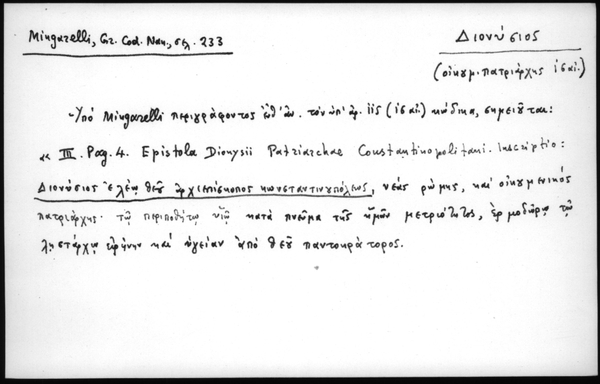 Mingarelli, Gr. Cod. Nan., σελ. 233
Διονύσιος
(οἰκουμ. πατριάρχης ισαί.)
Ὑπό Mingarelli περιγράφοντος τὸν ὑπ' ἀρ. (ισαί.) κώδικα, σημειοῦται:
« III. Pag. 4. Epistola Dionysii Patriarchae Constantinopolitani. Inscriptio:
Διονύσιος ἐλέῳ θεοῦ ἀρχιεπίσκοπος κωνσταντινουπόλεως, νέας ῥώμης, καί οἰκουμενικός
πατριάρχης. τῷ περιποθήτῳ υἱῷ κατά πνεῦμα τῆς ἡμῶν μετριότητος, ἑρμοδώρῳ τῷ
λῃστάρχῳ εἰρήνην καί ὑγείαν ἀπό θεοῦ παντοκράτορος.